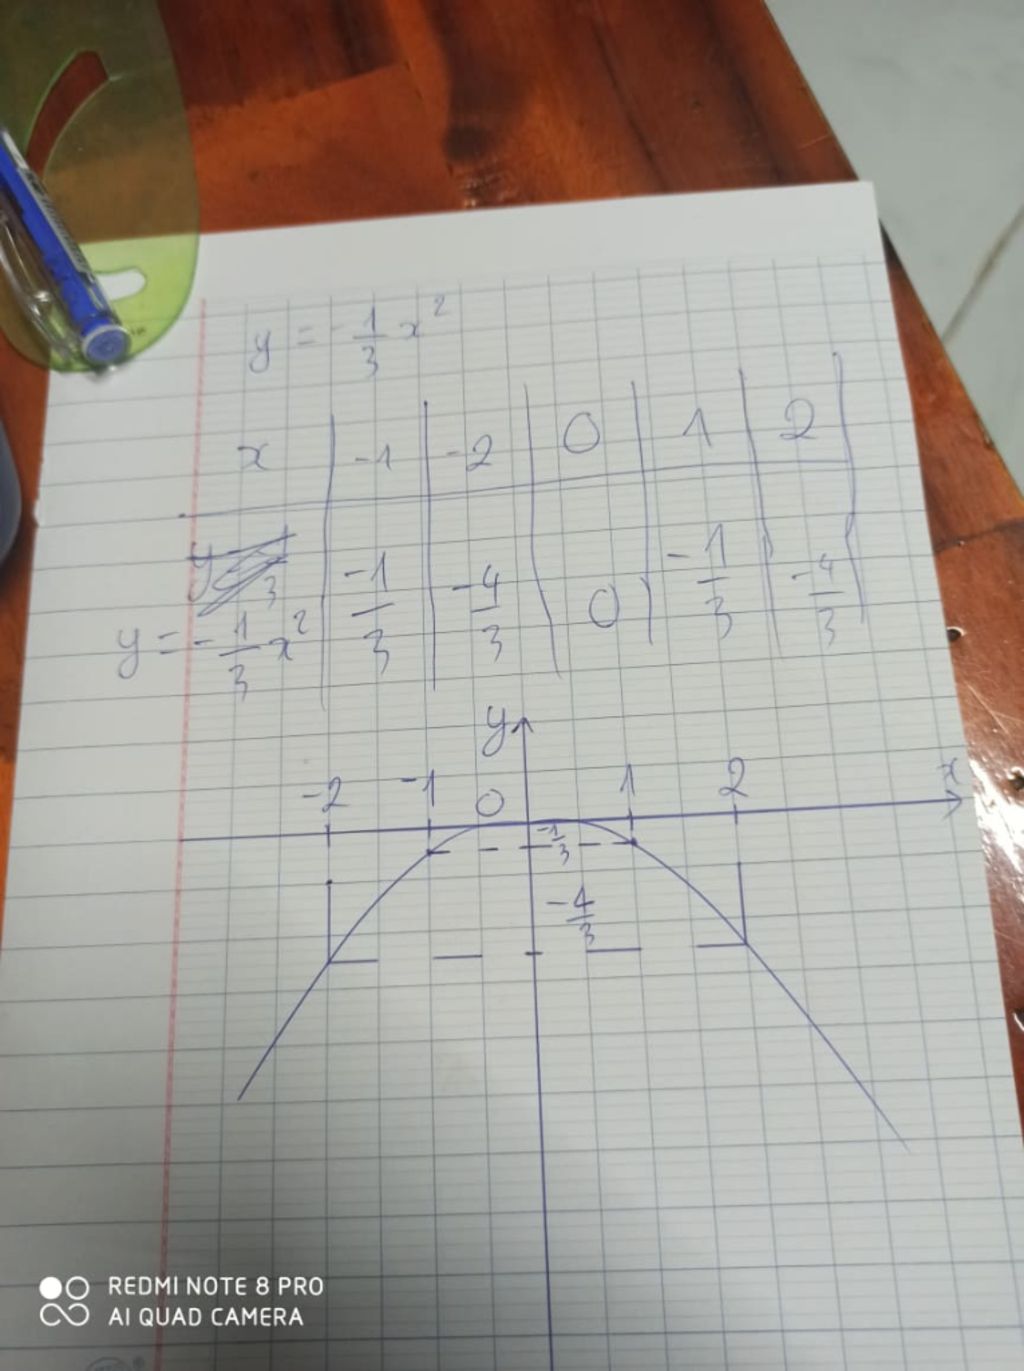 y = -1/3 x²
x | -1 | -2 | 0 | 1 | 2
y = -1/3 x² | -1/3 | -4/3 | 0 | -1/3 | -4/3
y
-2 -1 0 1 2 x
-1/3
-4/3
REDMI NOTE 8 PRO
AI QUAD CAMERA